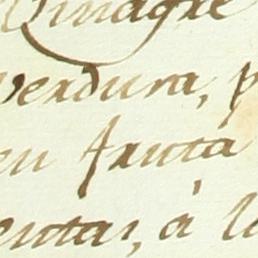 Vinagre
verdura, p
en fruta
entas, á lo